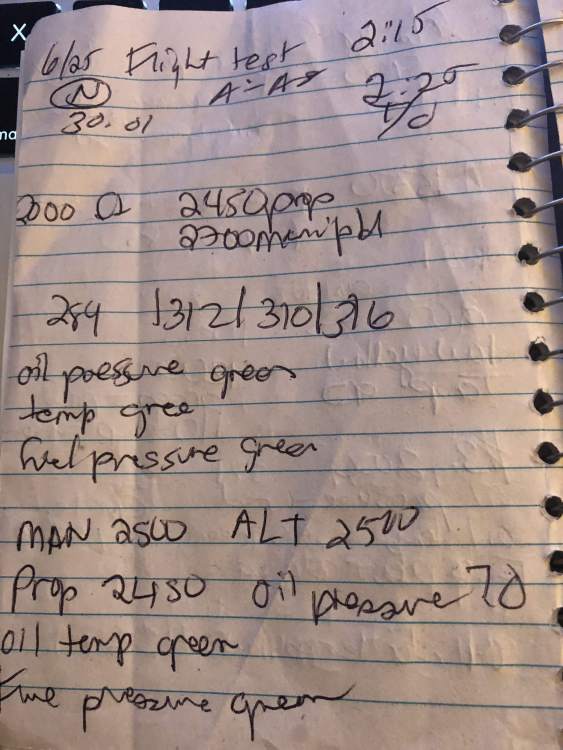 6/25 Flight test 2:15
N 2:25
30.01 T/d
2000 2450 prop
2700 manip
284 | 312 | 310 | 316
oil pressure green
temp gree
fuel pressure green
MAN 2500 ALT 2500
Prop 2450 oil pressure 70
oil temp green
pressure green